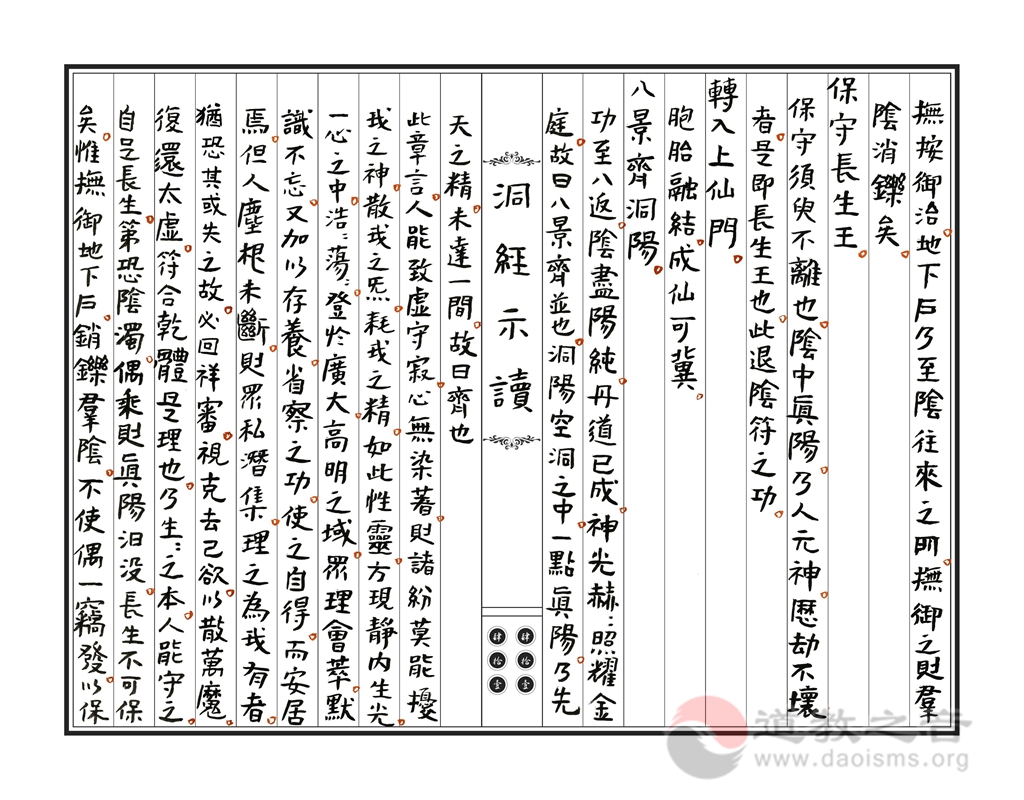 撫按御治地下戶乃至陰往來之門撫御之則羣
陰消鑠矣
保守長生王
保守須臾不離也陰中眞陽乃人元神歷劫不壞
者是即長生王也此退陰符之功
轉入上仙門
胞胎融結成仙可冀
八景齊洞陽
功至八返陰盡陽純丹道已成神光赫:照耀金
庭故曰八景齊並也洞陽空洞之中一點眞陽乃先
洞經示讀
肆拾壹
肆拾壹
天之精未達一間故曰齊也
此章言人能致虛守寂心無染著則諸紛莫能擾
我之神散我之炁耗我之精如此性靈方現靜內生光
一心之中浩:蕩:登於廣大高明之域眾理會萃默
識不忘又加以存養省察之功使之自得而安居
焉但人塵根未斷則眾私潛集理之為我有者
猶恐其或失之故必回祥審視克去己欲以散萬魔
復還太虛符合乾體是理也乃生:之本人能守之
自足長生第恐陰濁偶乘則眞陽汩没長生不可保
矣惟撫御地下戶銷鑠羣陰不使偶一竊發以保
道教之音
www.daoisms.org